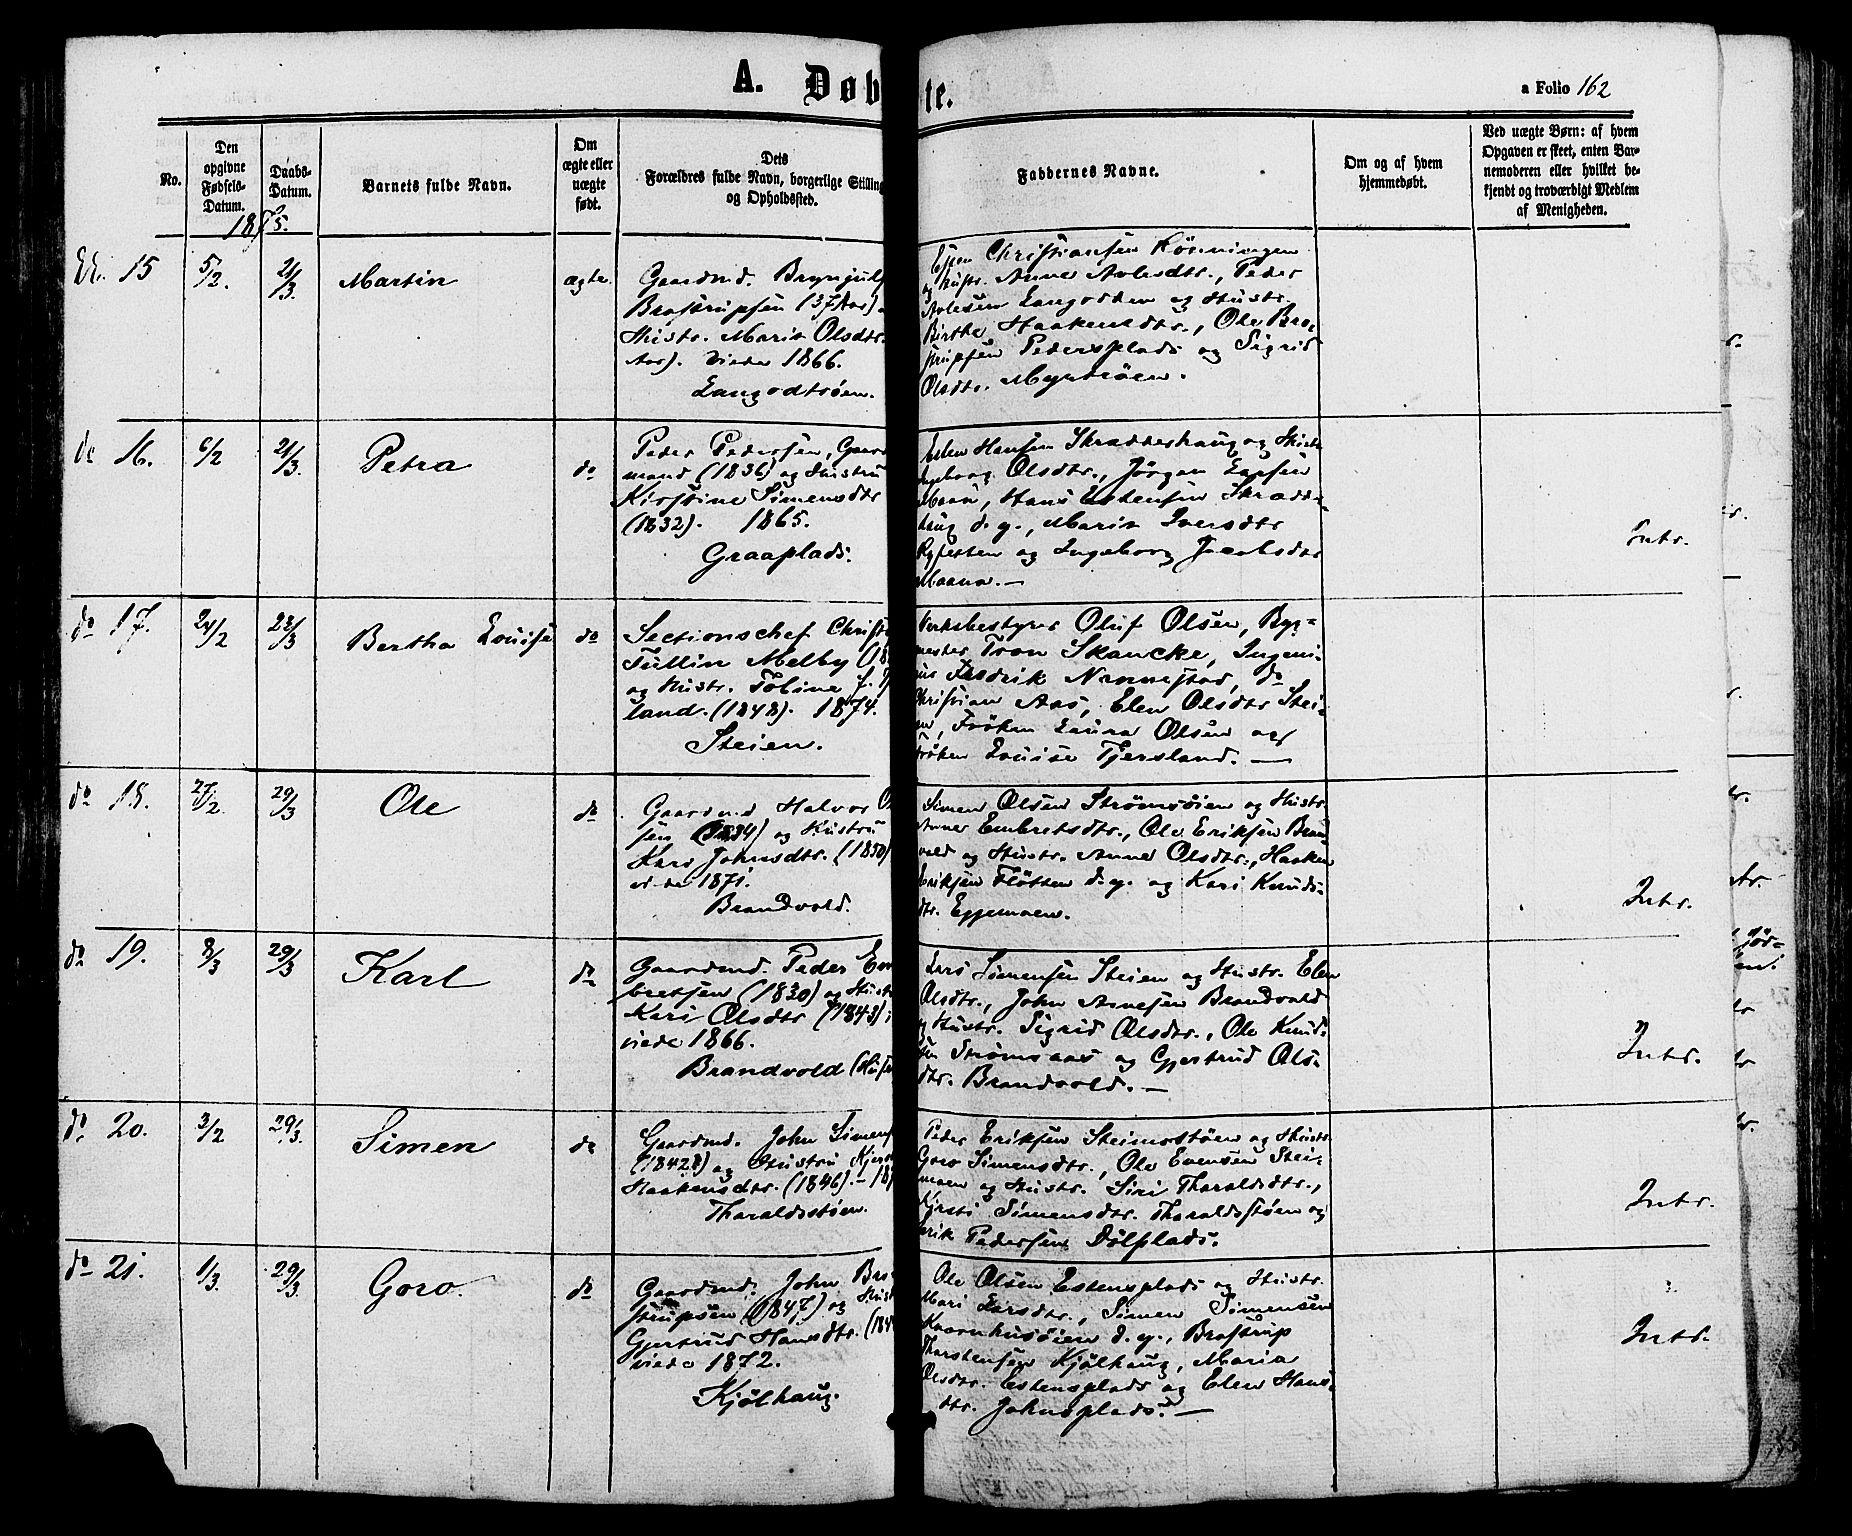 A. Døb
te.
a Folio 162
No.
Den
opgivne
Fødsels-
Datum.
Daabs-
Datum.
Barnets fulde Navn.
Om
ægte eller
uægte
født.
Dets
Forældres fulde Navn, borgerlige Stilling
og Opholdssted.
Faddernes Navne.
Om og af hvem
hjemmedøbt.
Ved uægte Børn: af hvem
Opgaven er skeet, enten Bar-
nemoderen eller hvilket be-
kjendt og troværdigt Medlem
af Menigheden.
1875.
15
5/2.
21/3
Martin
ægte
Gaardmd. Brynjulf
Brostrupsen (37 Aar)
Hustr. Marit Olsdtr.
Aar). viede 1866.
Langodtrøen.
Espen Christiansen Rönningen
og Hustr. Anne Avlesdtr., Peder
Avlesen Langodden og Hustr.
Birthe Haakensdtr., Ole Bro-
strupsen Pedersplads og Sigrid
Olsdtr. Myrtrøen.
do 16.
6/2
21/3
Petra
do
Peder Pedersen, Gaard
mand (1836) og Hustru
Kirstine Simensdtr
(1832). 1865.
Graaplads.
Esten Hansen Skraddershaug og Hustr
Ingeborg Olsdtr., Jörgen
Moan, Hans Estensen Skradd-
haug d. y., Marit Iversdtr
og Ingeborg Jacobsdtr
Moane. —
Intr.
do 17.
24/2
28/3
Bertha Louise
do
Sectionschef Christi
Tullin Melby (18
og Hustr. Tobine f. Tj
land. (1848). 1874.
Steien.
Verksbestyrer Oluf Olsen, Byg-
mester Tron Skancke, Ingeni-
ør Fredrik Nannestad, do
Christian Aas, Elen Olsdtr Stei-
en, Fröken Laura Olsen og
Fröken Louise Tjersland. —
do 18.
27/2.
29/3
Ole
do
Gaardmd Halvor O
sen (1834) og Hustru
Kari Johnsdtr. (1850)
viede 1871.
Brandvold.
Simen Olsen Strømsöien og Hustr.
Anne Embretsdtr., Ole Eriksen Brand
vold og Hustr. Anne Olsdtr., Haaken
Eriksen Fløtten d. y. og Kari Knuds-
dtr. Eggemoen.
Intr.
do 19.
8/3
29/3
Karl
do
Gaardmd. Peder Em
bretsen (1830) og Hustr
Kari Olsdtr (1843)
viede 1866.
Brandvold (Hus
Lars Simensen Steien og Hustr. Elen
Olsdtr., John Arnesen Brandvold
og Hustr. Sigrid Olsdtr., Ole Knud-
sen Strømsaas og Gjertrud Ols-
dtr. Brandvold. —
Intr.
do 20.
3/2
29/3.
Simen
do
Gaardmd. John Simens
(1842) og Hustru Kjers
Haakensdtr. (1846). - 18
Tharaldsstøen.
Peder Eriksen Steimostøen og Hustr.
Goro Simensdtr., Ole Evensen Stei-
moen og Hustr. Siri Tharaldsdtr.,
Kjersti Simensdtr. Tharaldsstøen og
Erik Pedersen Dölplads.
Intr.
do 21.
1/3.
29/3.
Goro.
do
Gaardmd. John Bro-
strupsen (1847) og Hust
Gjertrud Hansdtr. (184
viede 1872.
Kjølhaug.
Ole Olsen Estensplads og Hustr.
Mari Larsdtr., Simen Simensen
Kvernhusöien d. y., Brostrup
Thorstensen Kjølhaug, Maria
Olsdtr. Estensplads og Elen Hans-
dtr. Johnsplads. —
Intr.